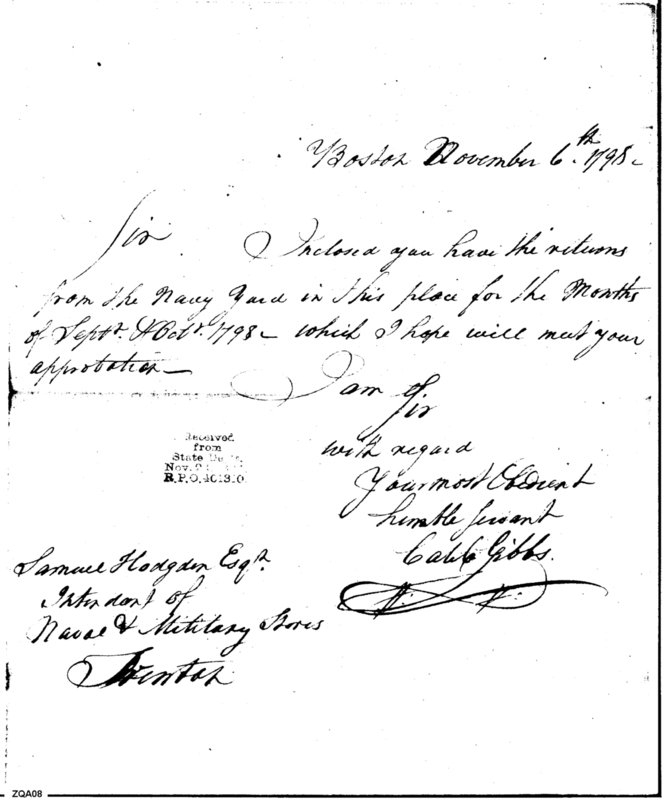 Boston November 6th. 1798
Sir Inclosed you have the returns
from the Navy Yard in this place for the Months
of Septr. & Octr. 1798 which I hope will meet your
approbation
I am
Sir
with regard
Your most Obedient
humble servant
Caleb Gibbs.
Received
from
State
Nov. 2
R.P.O. 401310
Samuel Hodgdon Esqr.
Intendant of
Naval & Military Stores
Trenton
ZQA08